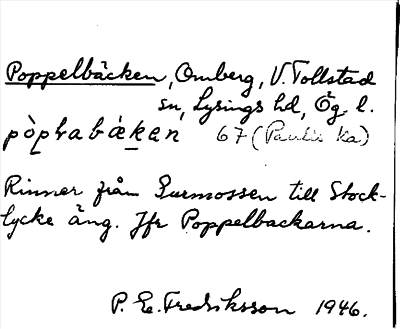 Poppelbäcken, Omberg, V. Tollstad
sn, Lysings hd, Ög. l.
pòpḷabǽḵen 67 (Paulis ka)
Rinner från Surmossen till Stock-
lycke äng. Jfr Poppelbackarna.
P. E. Fredriksson 1946.